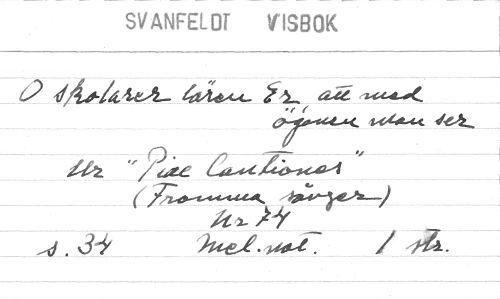 SVANFELDT VISBOK
O skolarer lären Er, att med
ögonen man ser
Ur "Piae Cantiones"
(Fromma sånger)
Nr 74
s. 34 Mel. not. 1 str.